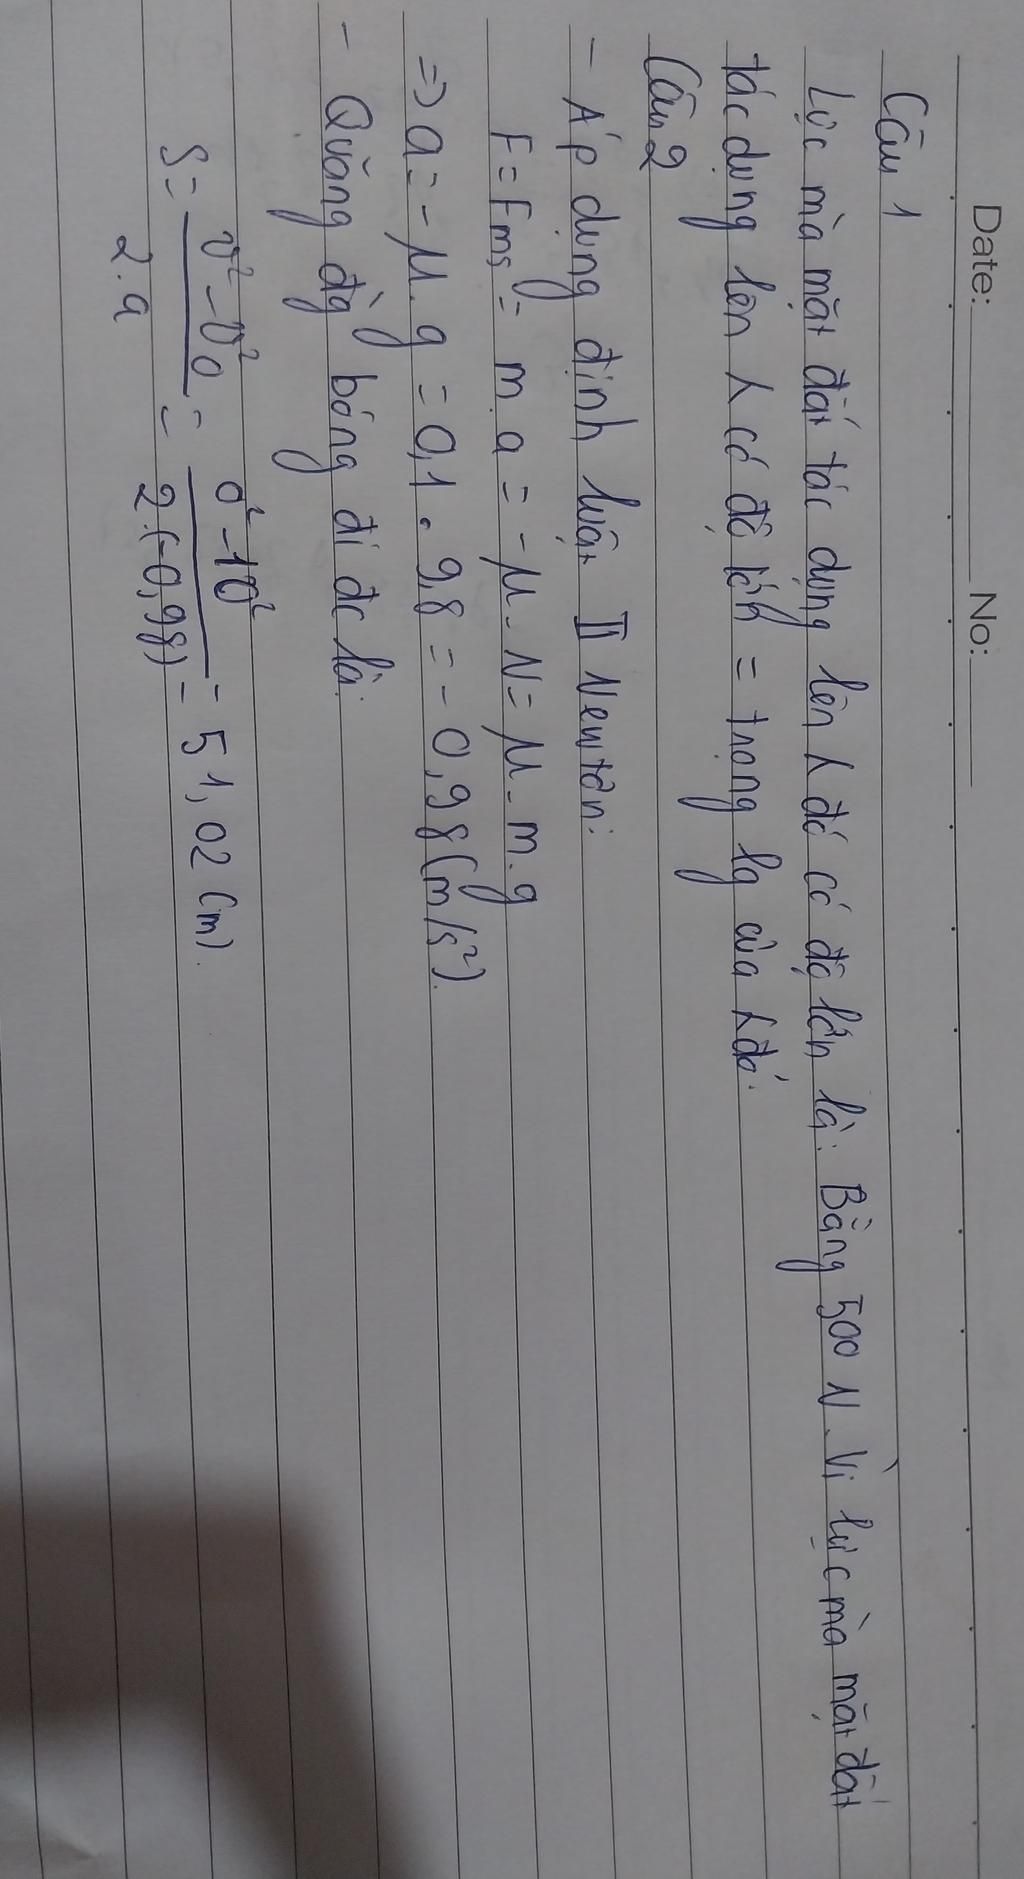 Date: No:
Câu 1
Lực mà mặt đất tác dụng lên λ đó có độ lớn là: Bằng 500 N. Vì lực mà mặt đất
tác dụng lên λ có độ lớn = trọng lg của λ đó.
Câu 2
- Áp dụng định luật II Newton:
F = Fms = m a = - μ . N = μ . m . g
=> a = - μ . g = 0,1 . 9,8 = - 0,98 (m/s²).
- Quãng đg bóng đi đc là:
S = (v² - v₀²) / (2.a) = (0² - 10²) / (2.(-0,98)) = 51,02 (m).